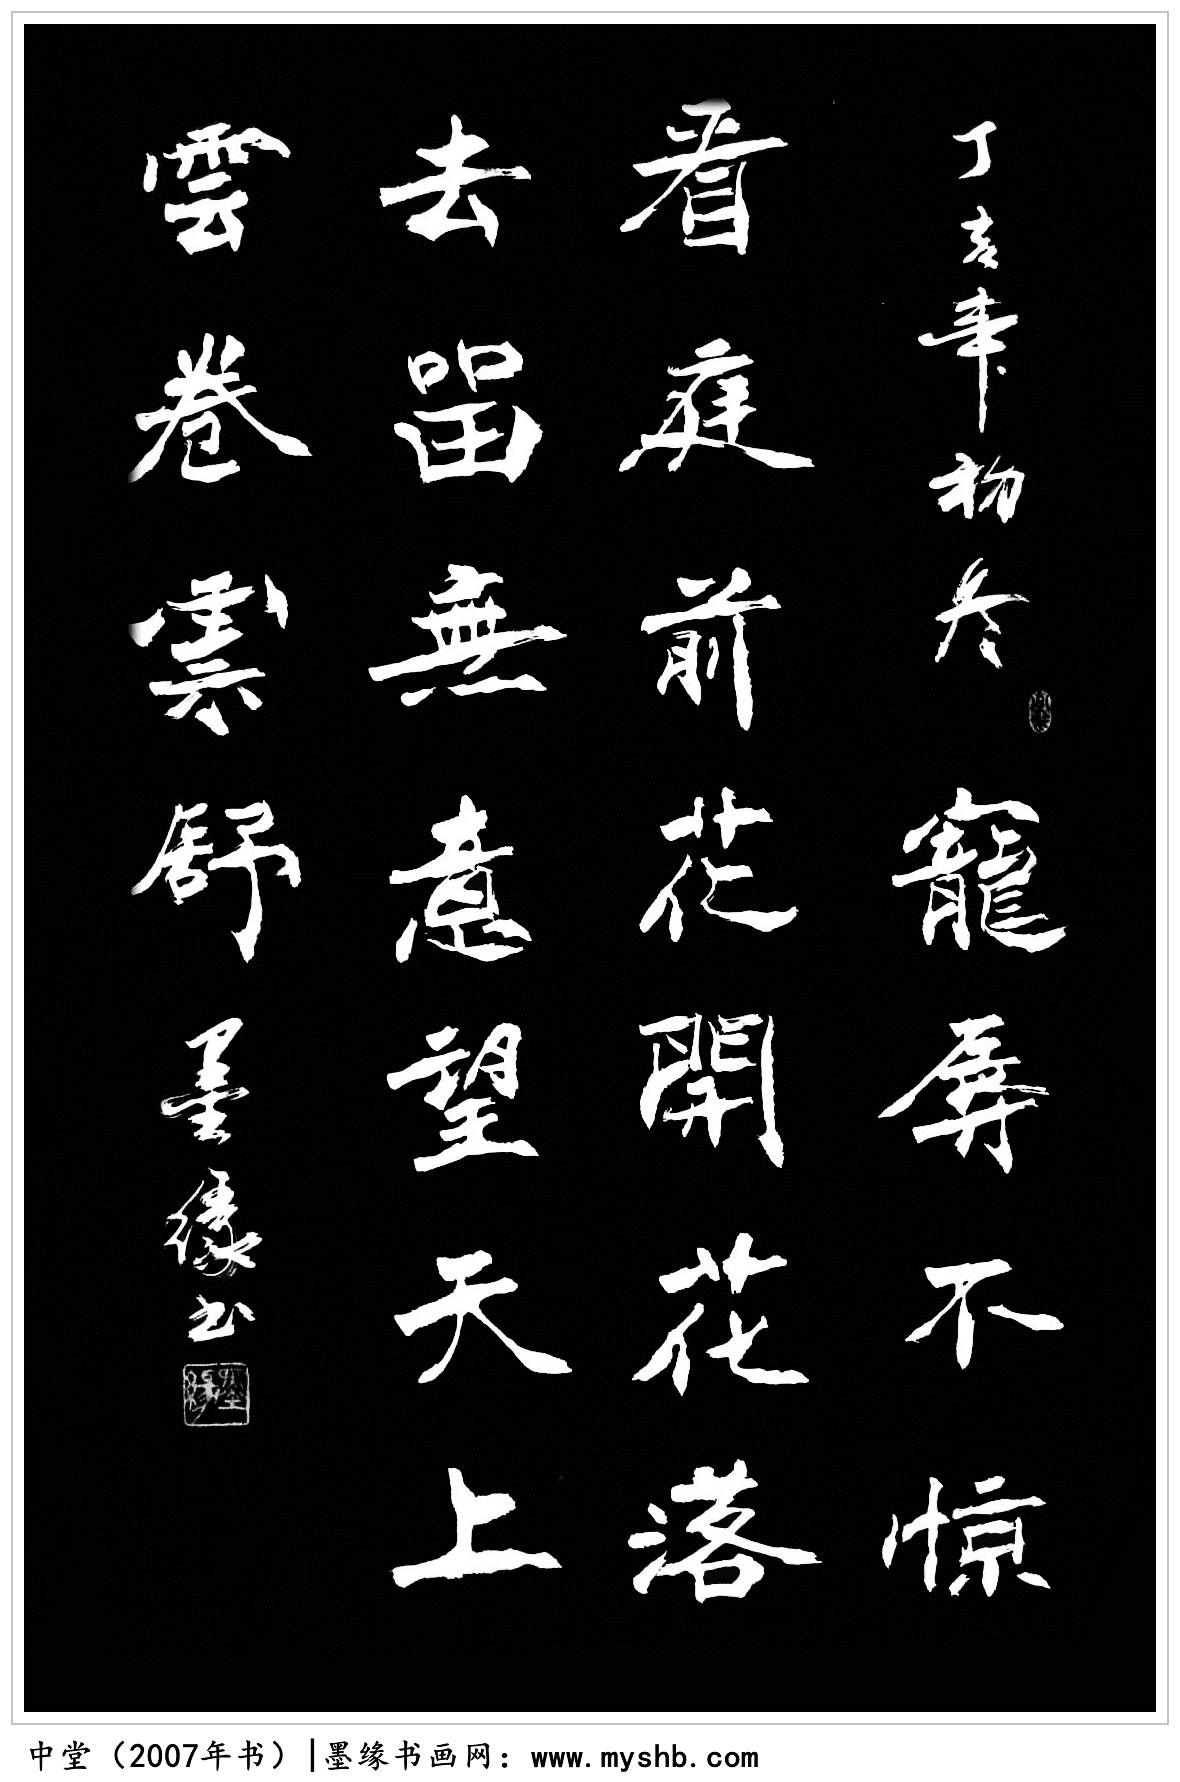 丁亥年初冬 寵辱不惊
看庭前花開花落
去留無意望天上
雲卷雲舒 墨缘书
墨缘
中堂（2007年书）|墨缘书画网：www.myshb.com